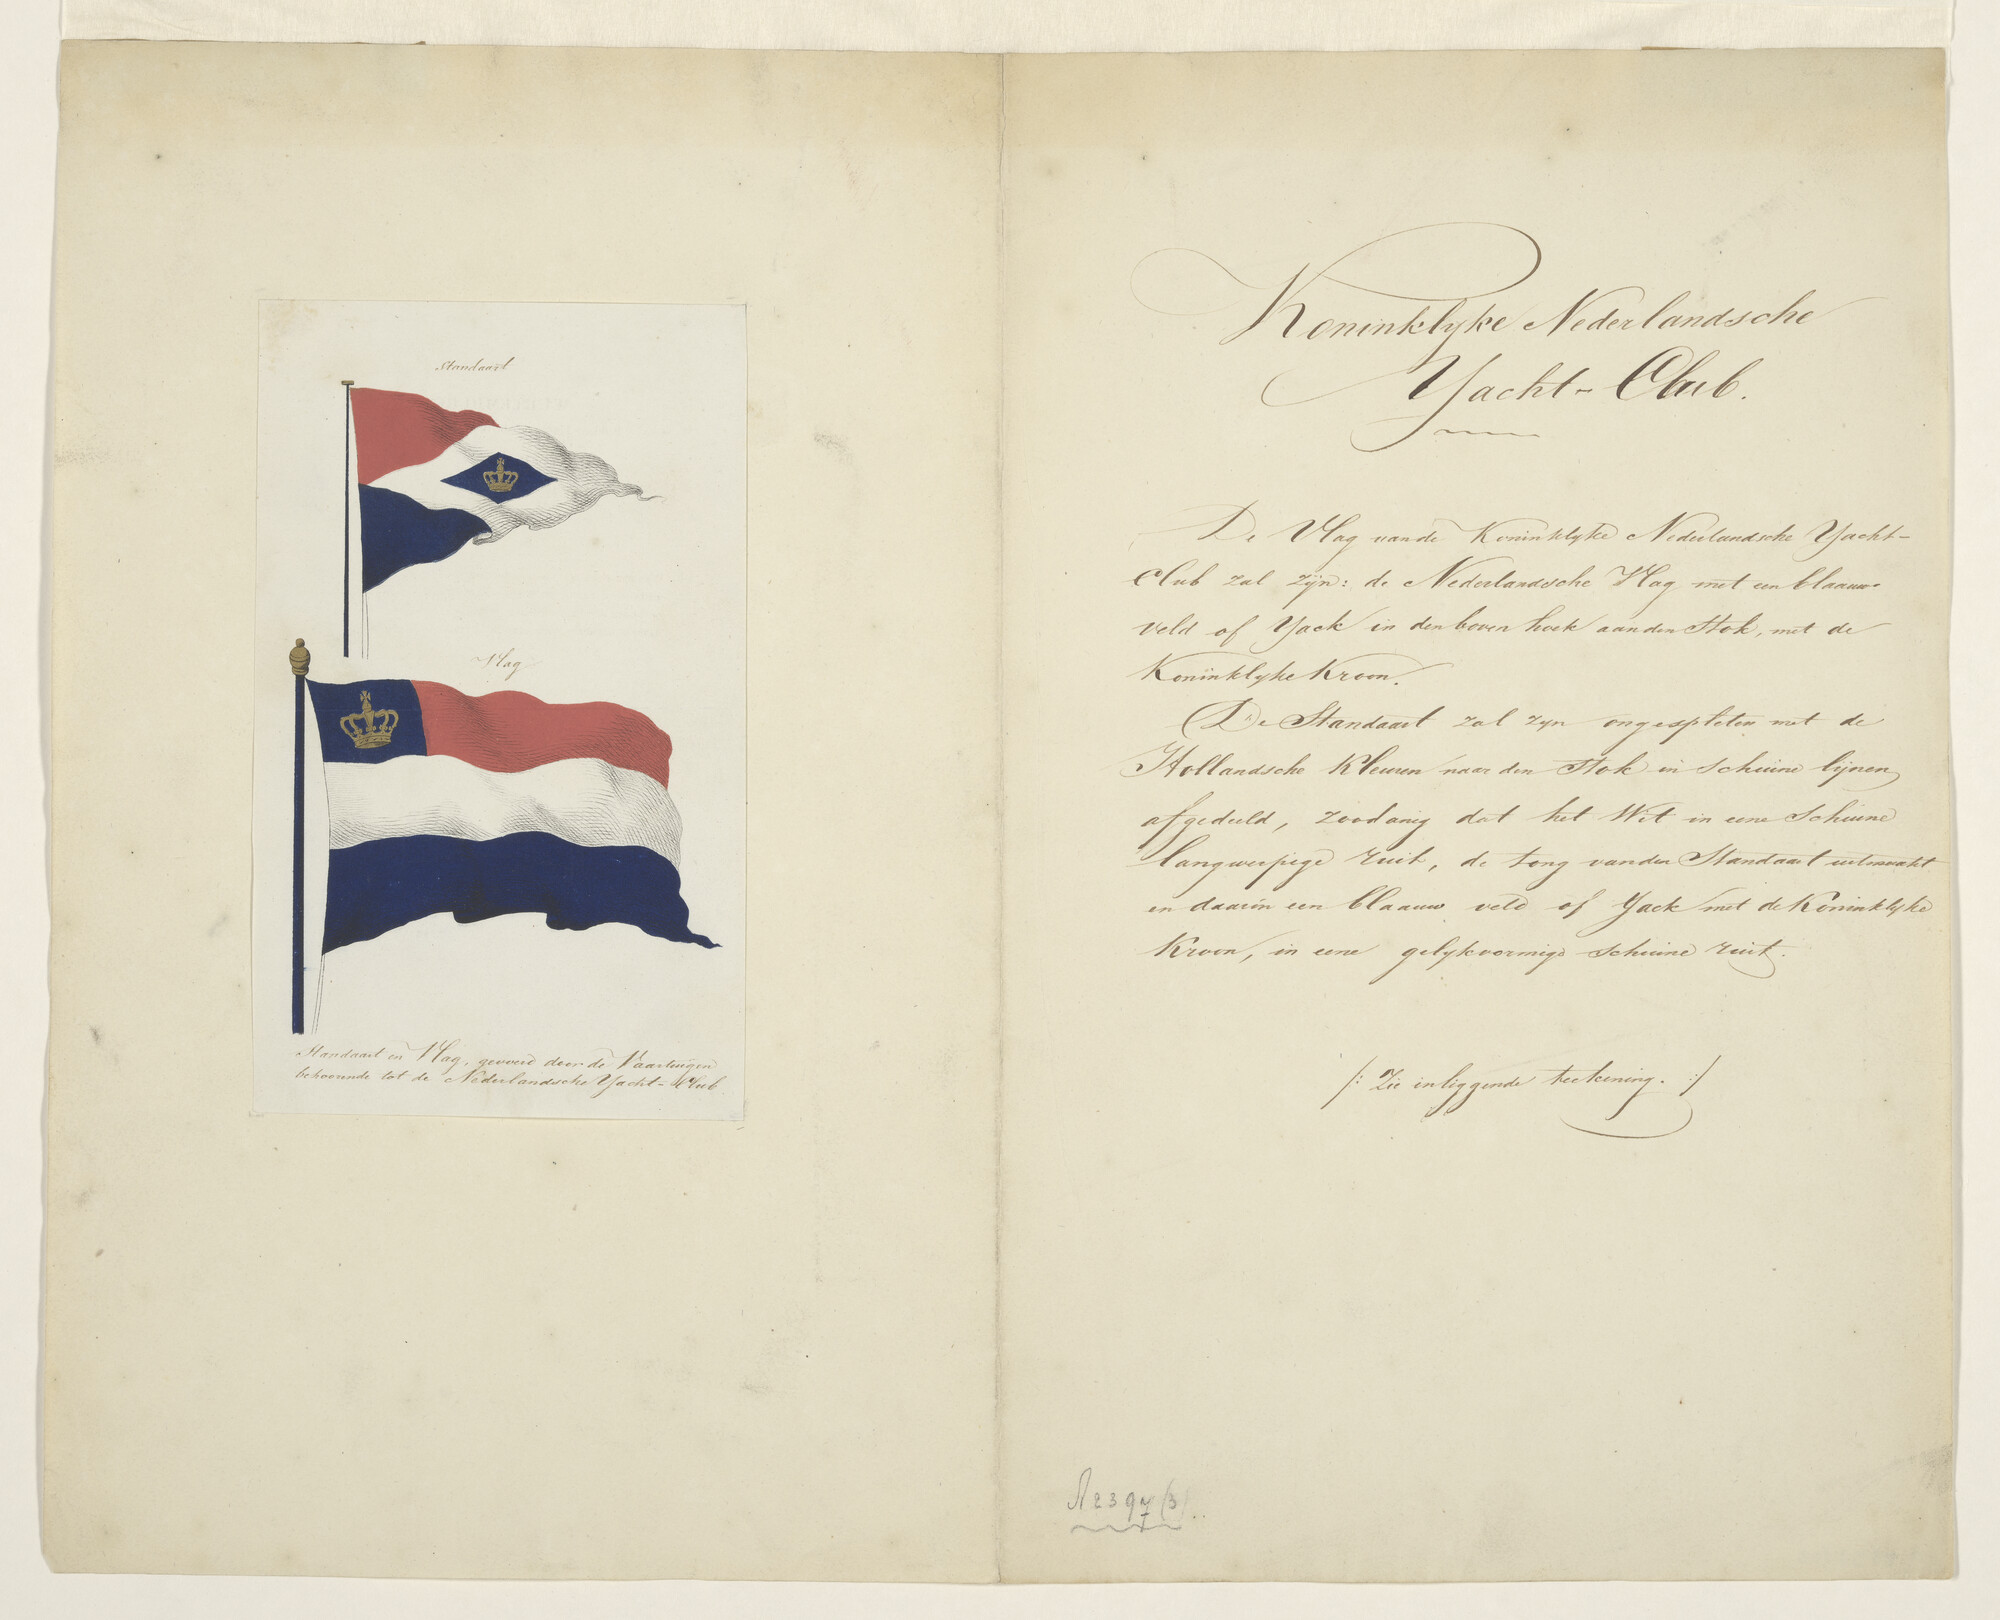 Standaart
Vlag
Standaart en Vlag, gevoerd door de Vaartuigen
behoorende tot de Nederlandsche Yacht-Club.
Koninklyke Nederlandsche
Yacht-Club.
De Vlag van de Koninklyke Nederlandsche Yacht-
Club zal zijn: de Nederlandsche Vlag met een blaauw
veld of Yack in den boven hoek aan den Stok, met de
Koninklyke Kroon.
De Standaart zal zyn ongespleten met de
Hollandsche Kleuren naar den Stok in schuine lijnen
afgedeeld, zoodanig dat het Wit in eene Schuine
langwerpige ruit, de tong van den Standaart uitmaakt
en daarin een blaauw veld of Yack met de Koninklyke
Kroon, in eene gelykvormige schuine ruit.
/: Zie inliggende teekening. :/
A2397(3)